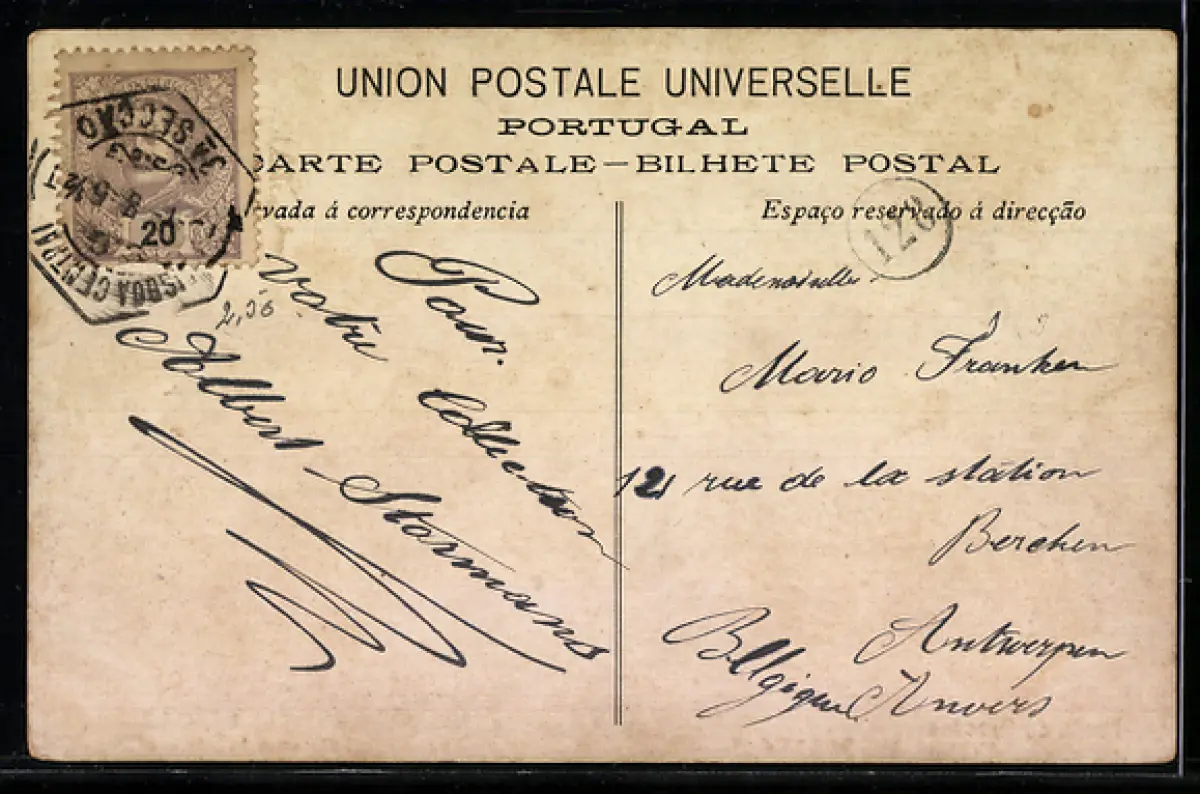 UNION POSTALE UNIVERSELLE
PORTUGAL
CARTE POSTALE—BILHETE POSTAL
rvada á correspondencia
Espaço reservado á direcção
20
3ª SECÇÃO
LISBOA CENTRAL
128
2,50
Pour
votre Collection
Albert Stormans
Mademoiselle
Mario Franken
121 rue de la station
Berchen
Antwerpen
Belgique Anvers